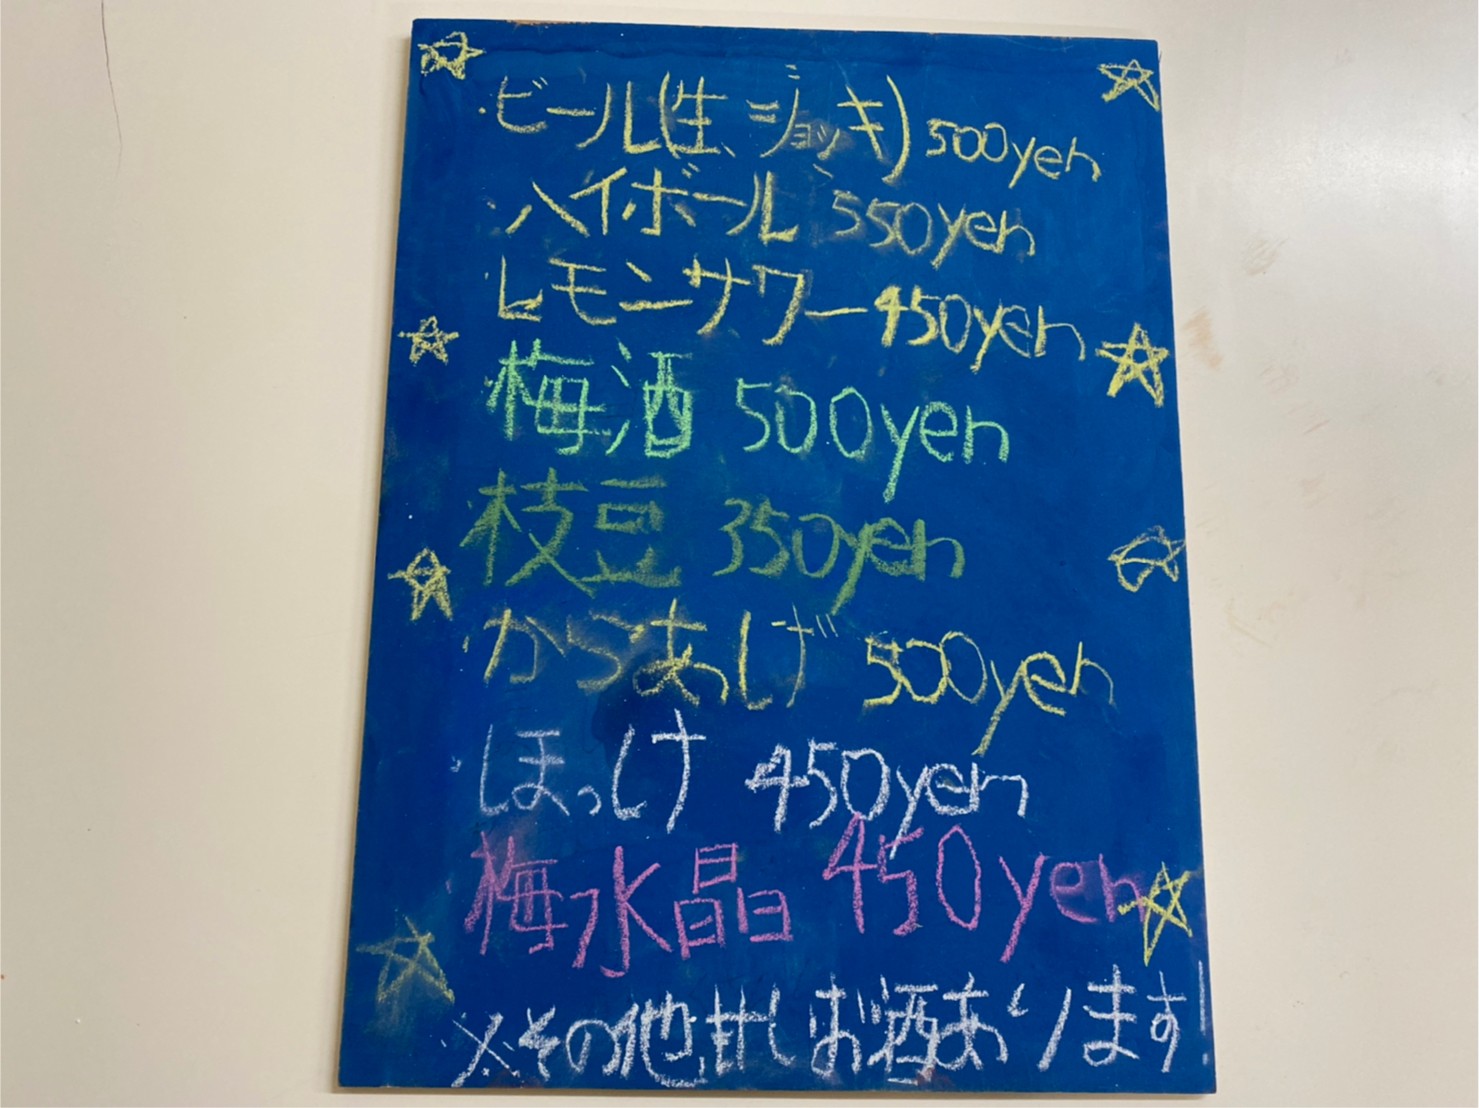 ・ビール(生、ジョッキ) 500yen
・ハイボール 550yen
レモンサワー 450yen
梅酒 500yen
枝豆 350yen
からあげ 500yen
ほっけ 450yen
梅水晶 450yen
※その他甘しお酒あります!